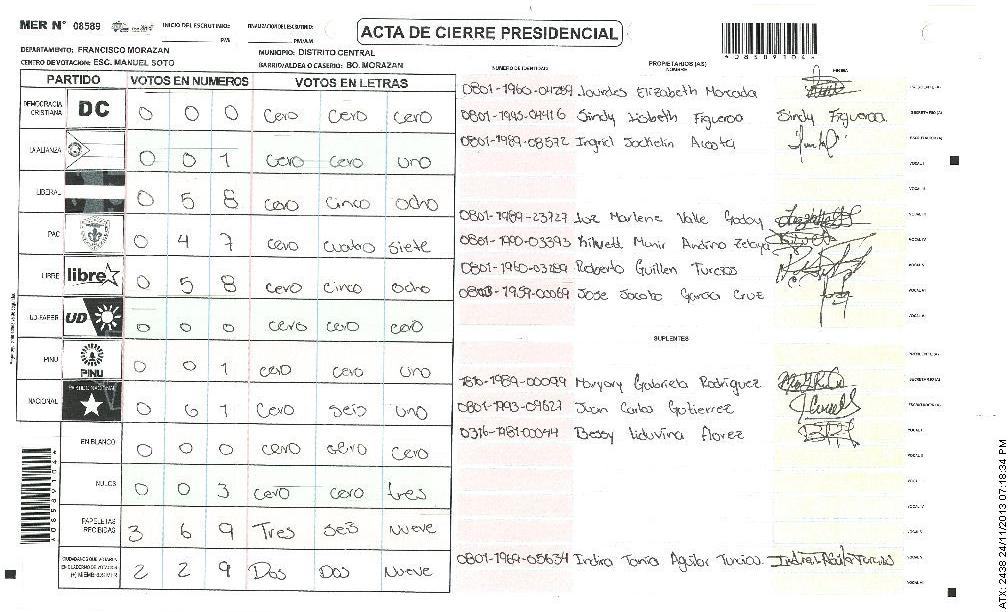 MER N° 08589 INICIO DEL ESCRUTINIO: FINALIZACION DEL ESCRUTINIO: ACTA DE CIERRE PRESIDENCIAL
PM PM/AM
DEPARTAMENTO: FRANCISCO MORAZAN MUNICIPIO: DISTRITO CENTRAL
CENTRO DE VOTACION: ESC. MANUEL SOTO BARRIO/ALDEA O CASERIO: BO. MORAZAN
NUMERO DE IDENTIDAD PROPIETARIOS (AS) NOMBRE FIRMA
PARTIDO VOTOS EN NUMEROS VOTOS EN LETRAS
DEMOCRACIA CRISTIANA DC 0 0 0 cero cero cero
LA ALIANZA 0 0 1 cero cero uno
LIBERAL 0 5 8 cero cinco ocho
PAC 0 4 7 cero cuatro siete
LIBRE libre 0 5 8 cero cinco ocho
UD-FAPER UD 0 0 0 cero cero cero
PINU PINU 0 0 1 cero cero uno
NACIONAL PARTIDO NACIONAL 0 6 1 cero seis uno
EN BLANCO 0 0 0 cero cero cero
NULOS 0 0 3 cero cero tres
PAPELETAS RECIBIDAS 3 6 9 Tres seis nueve
CIUDADANOS QUE VOTARON EN CUADERNO DE VOTACION (+) MIEMBROS MER 2 2 9 Dos Dos Nueve
Lourdes Elizabeth Moncada
Sindy Lisbeth Figueroa Sindy Figueroa
0801-1989-08572 Ingrid Jackelin Acosta
0801-1989-23727 Luz Marlene Valle Godoy
0801-1990-03393 Andino Zelaya
Roberto Guillen Turcios
Jose Jacobo Garcia Cruz
SUPLENTES
Maryory Gabriela Rodriguez
0801-1993-09627 Juan Carlos Gutierrez
Bessy Liduvina Florez
0801-1969-05634 Indira Tania Aguilar Turcios
A08589104*
ATX: 2438 24/11/2013 07:18:34 PM